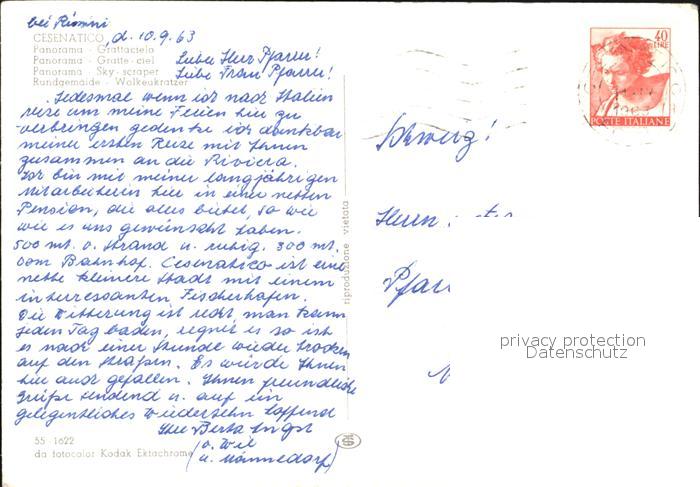 bei Rimini
CESENATICO, d. 10.9.63
Panorama - Grattacielo
Panorama - Gratte-ciel
Panorama - Sky-scraper
Rundgemaide - Wolkeukratzer
Lieber Herr Pfarrer!
Liebe Frau Pfarrer!
Jedesmal wenn ich nach Italien
reise um meine Ferien hier zu
verbringen gedenke ich dankbar
meiner ersten Reise mit Ihnen
zusammen an die Riviera.
Ich bin mit meiner langjährigen
Mitarbeiterin hier in einer netten
Pension, die alles bietet, so wie
wir es uns gewünscht haben.
500 mt. v. Strand u. ruhig. 300 mt.
vom Bahnhof. Cesenatico ist eine
nette kleinere Stadt mit einem
interressanten Fischerhafen.
Die Witterung ist recht man kann
jeden Tag baden, regnet es so ist
es nach einer Stunde wieder trocken
auf den Straßen. Es würde Ihnen
hier auch gefallen. Ihnen freundliche
Grüße sendend u. auf ein
gelegentliches Wiedersehn hoffend
Ihre Berta Angst
(v. Wil
u. Männedorf)
55 - 1622
da fotocolor Kodak Ektachrome
riproduzione vietata
40
LIRE
POSTE ITALIANE
Schweiz!
Herrn
Pfar
privacy protection
Datenschutz